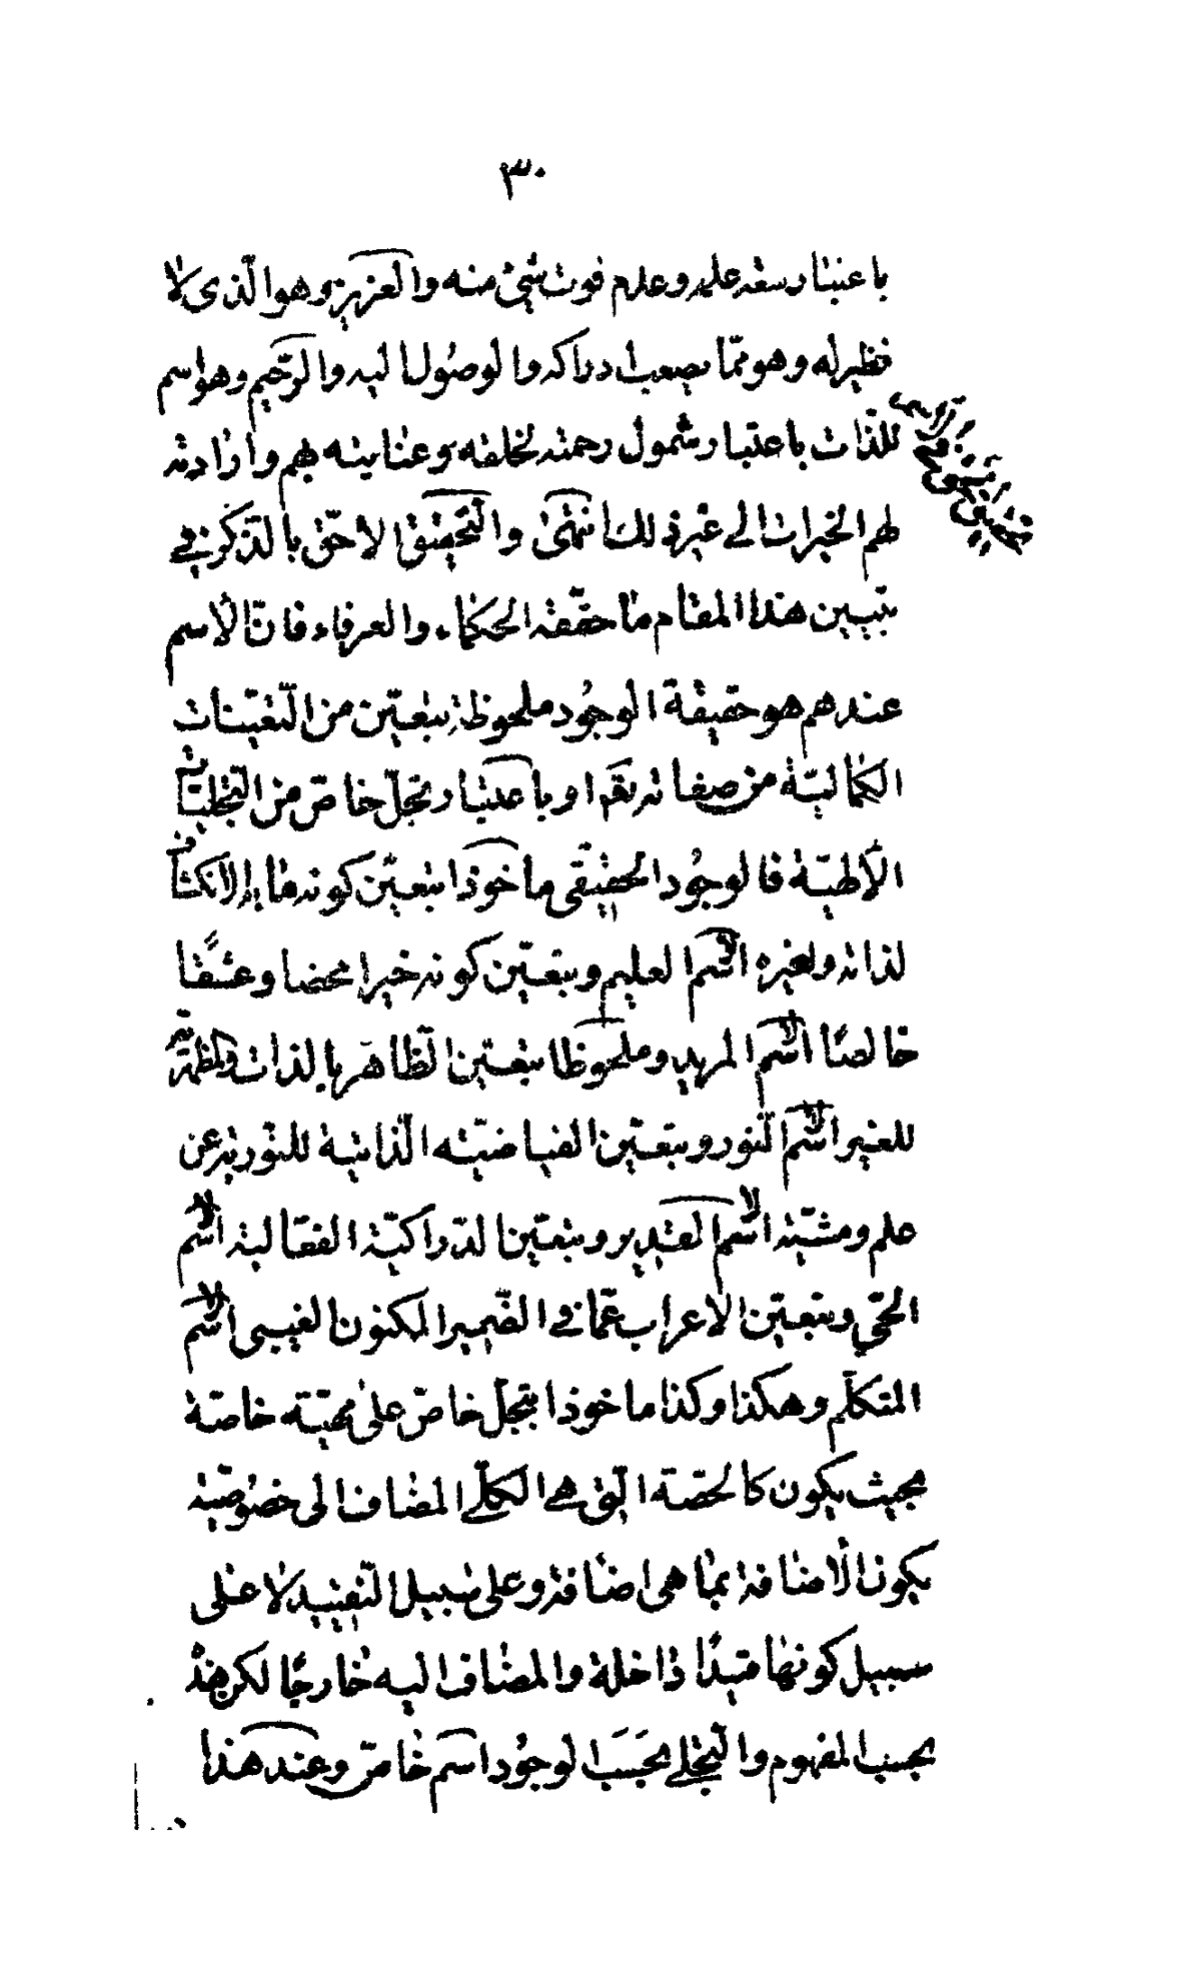 ٣٠
باعتبار سعة علمه وعدم فوت شيئ منه والعزيز وهو الّذى لا
نظير له وهو ممّا يصعب ادراكه والوصول اليه والرّحيم وهو اسم
للذّات باعتبار شمول رحمته لخلقه وعنايته بهم وارادته
لهم الخيرات الى غير ذلك انتهى والتحقيق الاحقّ بالذّكر فى
تبيين هذا المقام ما حقّقه الحكماء والعرفاء فانّ الاسم
عندهم هو حقيقة الوجود ملحوظة بتعيّن من التّعيّنات
الكماليّة من صفاته تعم او باعتبار تجلّ خاصّ من التّجلّيات
الالهيّة فالوجود الحقيقى ماخوذا بتعيّن كونه ما به الانكشاف
لذاته ولغيره الاسم العليم وبتعيّن كونه خيرا محضا وعشقا
خالصًا الاسم المريد وملحوظا بتعيّن الظّاهر بالذات والمظهريّة
للغير الاسم النّور وبتعيّن الفياضيّته الذّاتية للنّورية عن
علم ومشيّة الاسم القدير وبتعيّن الدّراكيّة الفعّالية الاسم
الحىّ وبتعيّن الاعراب عمّا فى الضّمير المكنون الغيبى الاسم
المتكلّم وهكذا وكذا ماخوذا بتجلّ خاصّ على مهيّته خاصّة
بحيث يكون كالحصّة الّتى هى الكلّى المضاف الى خصوصيّة
يكون الاضافة بما هى اضافة وعلى سبيل التّقييد لا على
سبيل كونها قيدًا داخلة والمضاف اليه خارجًا لكن هذا
بحسب المفهوم والتّجلى بحسب الوجود اسم خاصّ وعند هذا